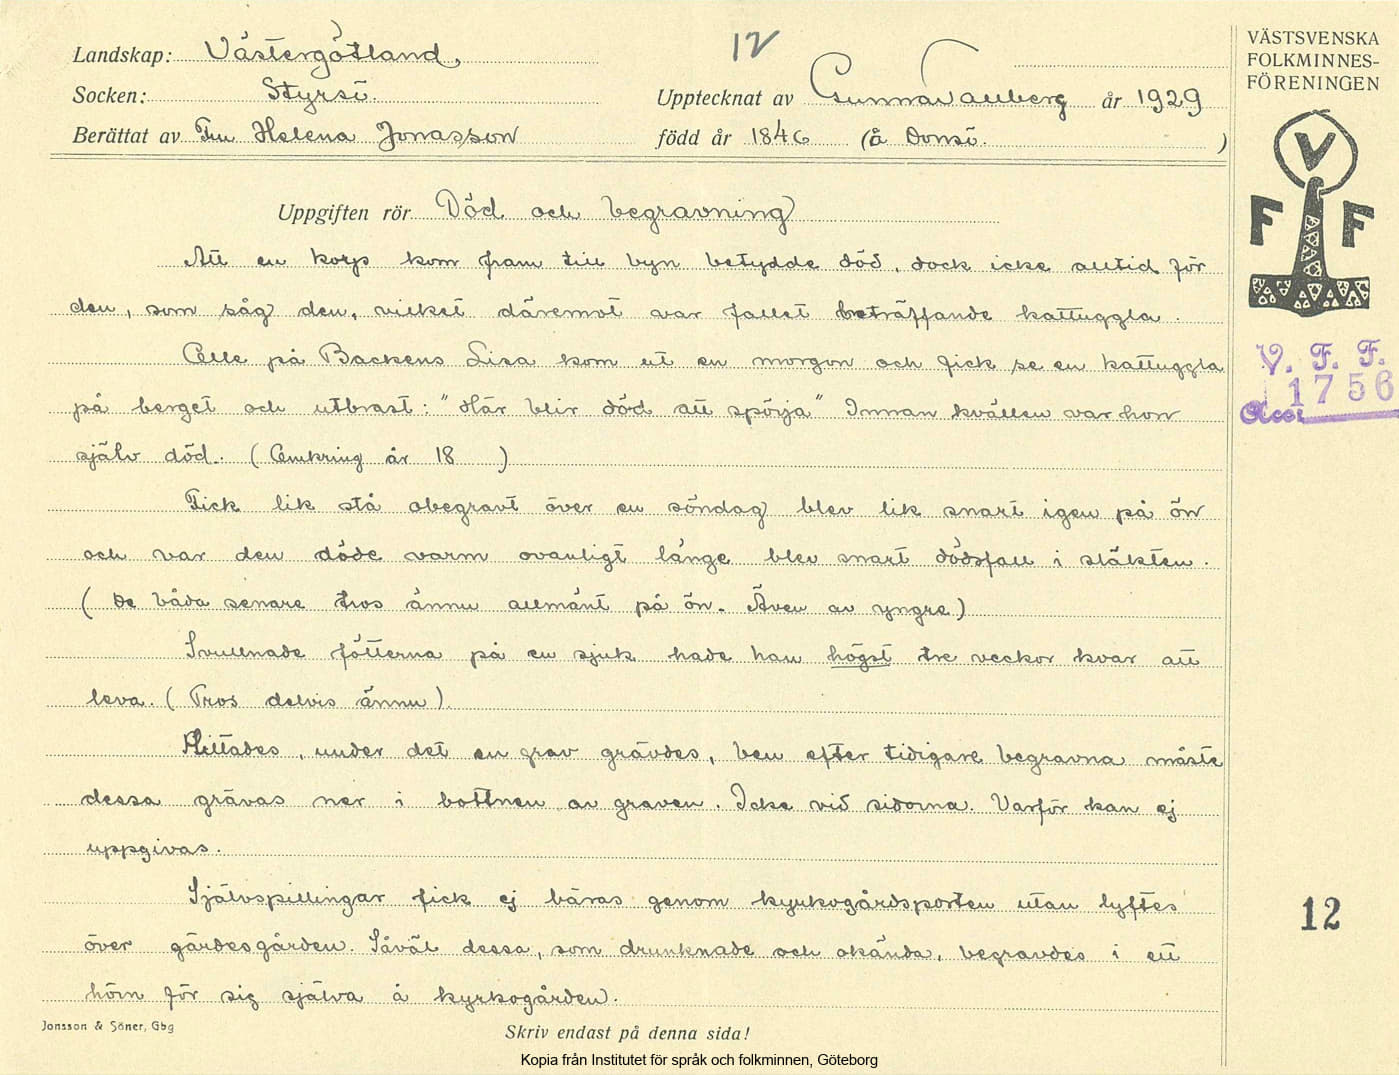 12
Landskap: Västergötland.
Socken: Styrsö.
Upptecknat av Gunnar år 1929
Berättat av Fru Helena Jonasson född år 1846 (å Donsö. )
VÄSTSVENSKA
FOLKMINNES-
FÖRENINGEN
V
F F
V. F. F.
1756
Acc:
Uppgiften rör Död och begravning
Att en korp kom fram till byn betydde död, dock icke alltid för
den, som såg den, vilket däremot var fallet beträffande kattuggla.
Olle på Backens Lisa kom ut en morgon och fick se en kattuggla
på berget och utbrast: "Här blir död att spörja" Innan kvällen var hon
själv död. (Omkring år 18 )
Fick lik stå obegravt över en söndag blev lik snart igen på ön
och var den döde varm ovanligt länge blev snart dödsfall i släkten.
(De båda senare tros ännu allmänt på ön. Även av yngre)
Svullnade fötterna på en sjuk hade han högst tre veckor kvar att
leva. (Tros delvis ännu)
Hittades, under det en grav grävdes, ben efter tidigare begravna måste
dessa grävas ner i bottnen av graven. Icke vid sidorna. Varför kan ej
uppgivas.
Självspillingar fick ej bäras genom kyrkogårdsporten utan lyftes
över gärdesgården. Såväl dessa, som drunknade och okända, begravdes i ett
hörn för sig själva å kyrkogården.
12
Jonsson & Söner, Gbg
Skriv endast på denna sida!
Kopia från Institutet för språk och folkminnen, Göteborg